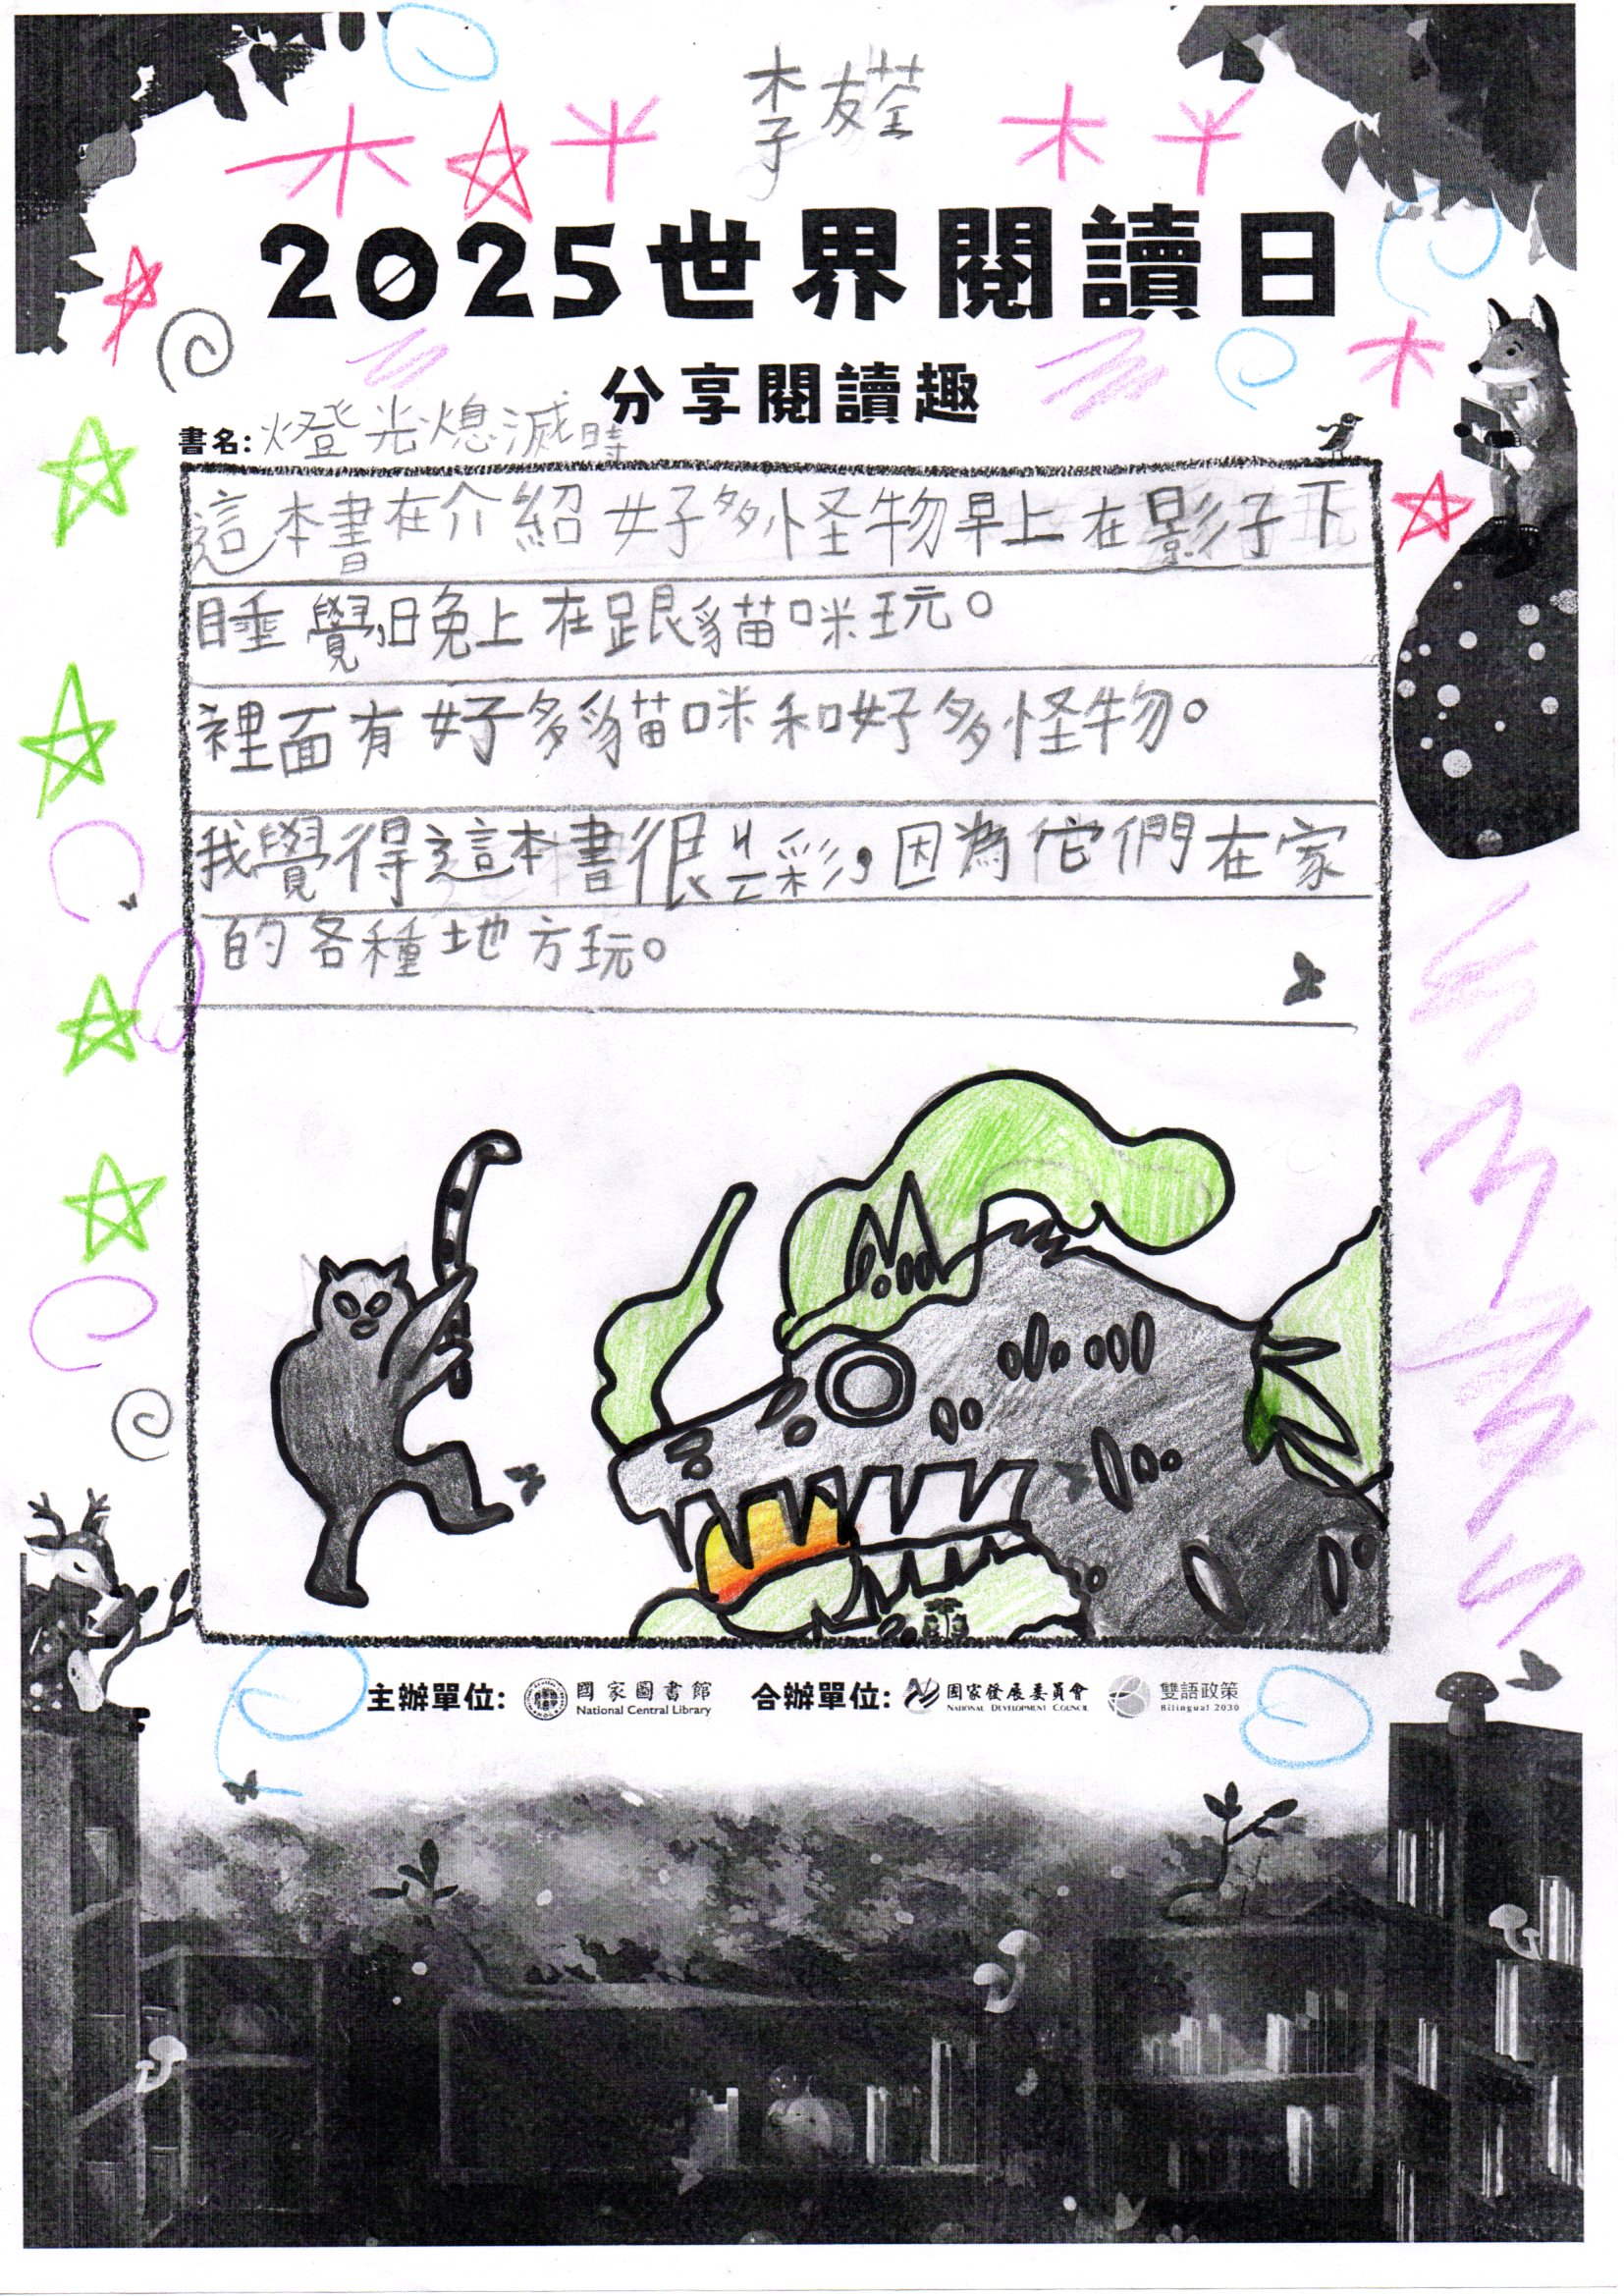 李友荃
2025世界閱讀日
分享閱讀趣
書名:燈光熄滅時
這本書在介紹好多怪物早上在影子下
睡覺,晚上在跟貓咪玩。
裡面有好多貓咪和好多怪物。
我覺得這本書很ㄐㄧㄥ彩,因為它們在家
的各種地方玩。
主辦單位: 國家圖書館 National Central Library 合辦單位: 國家發展委員會 NATIONAL DEVELOPMENT COUNCIL 雙語政策 Bilingual 2030